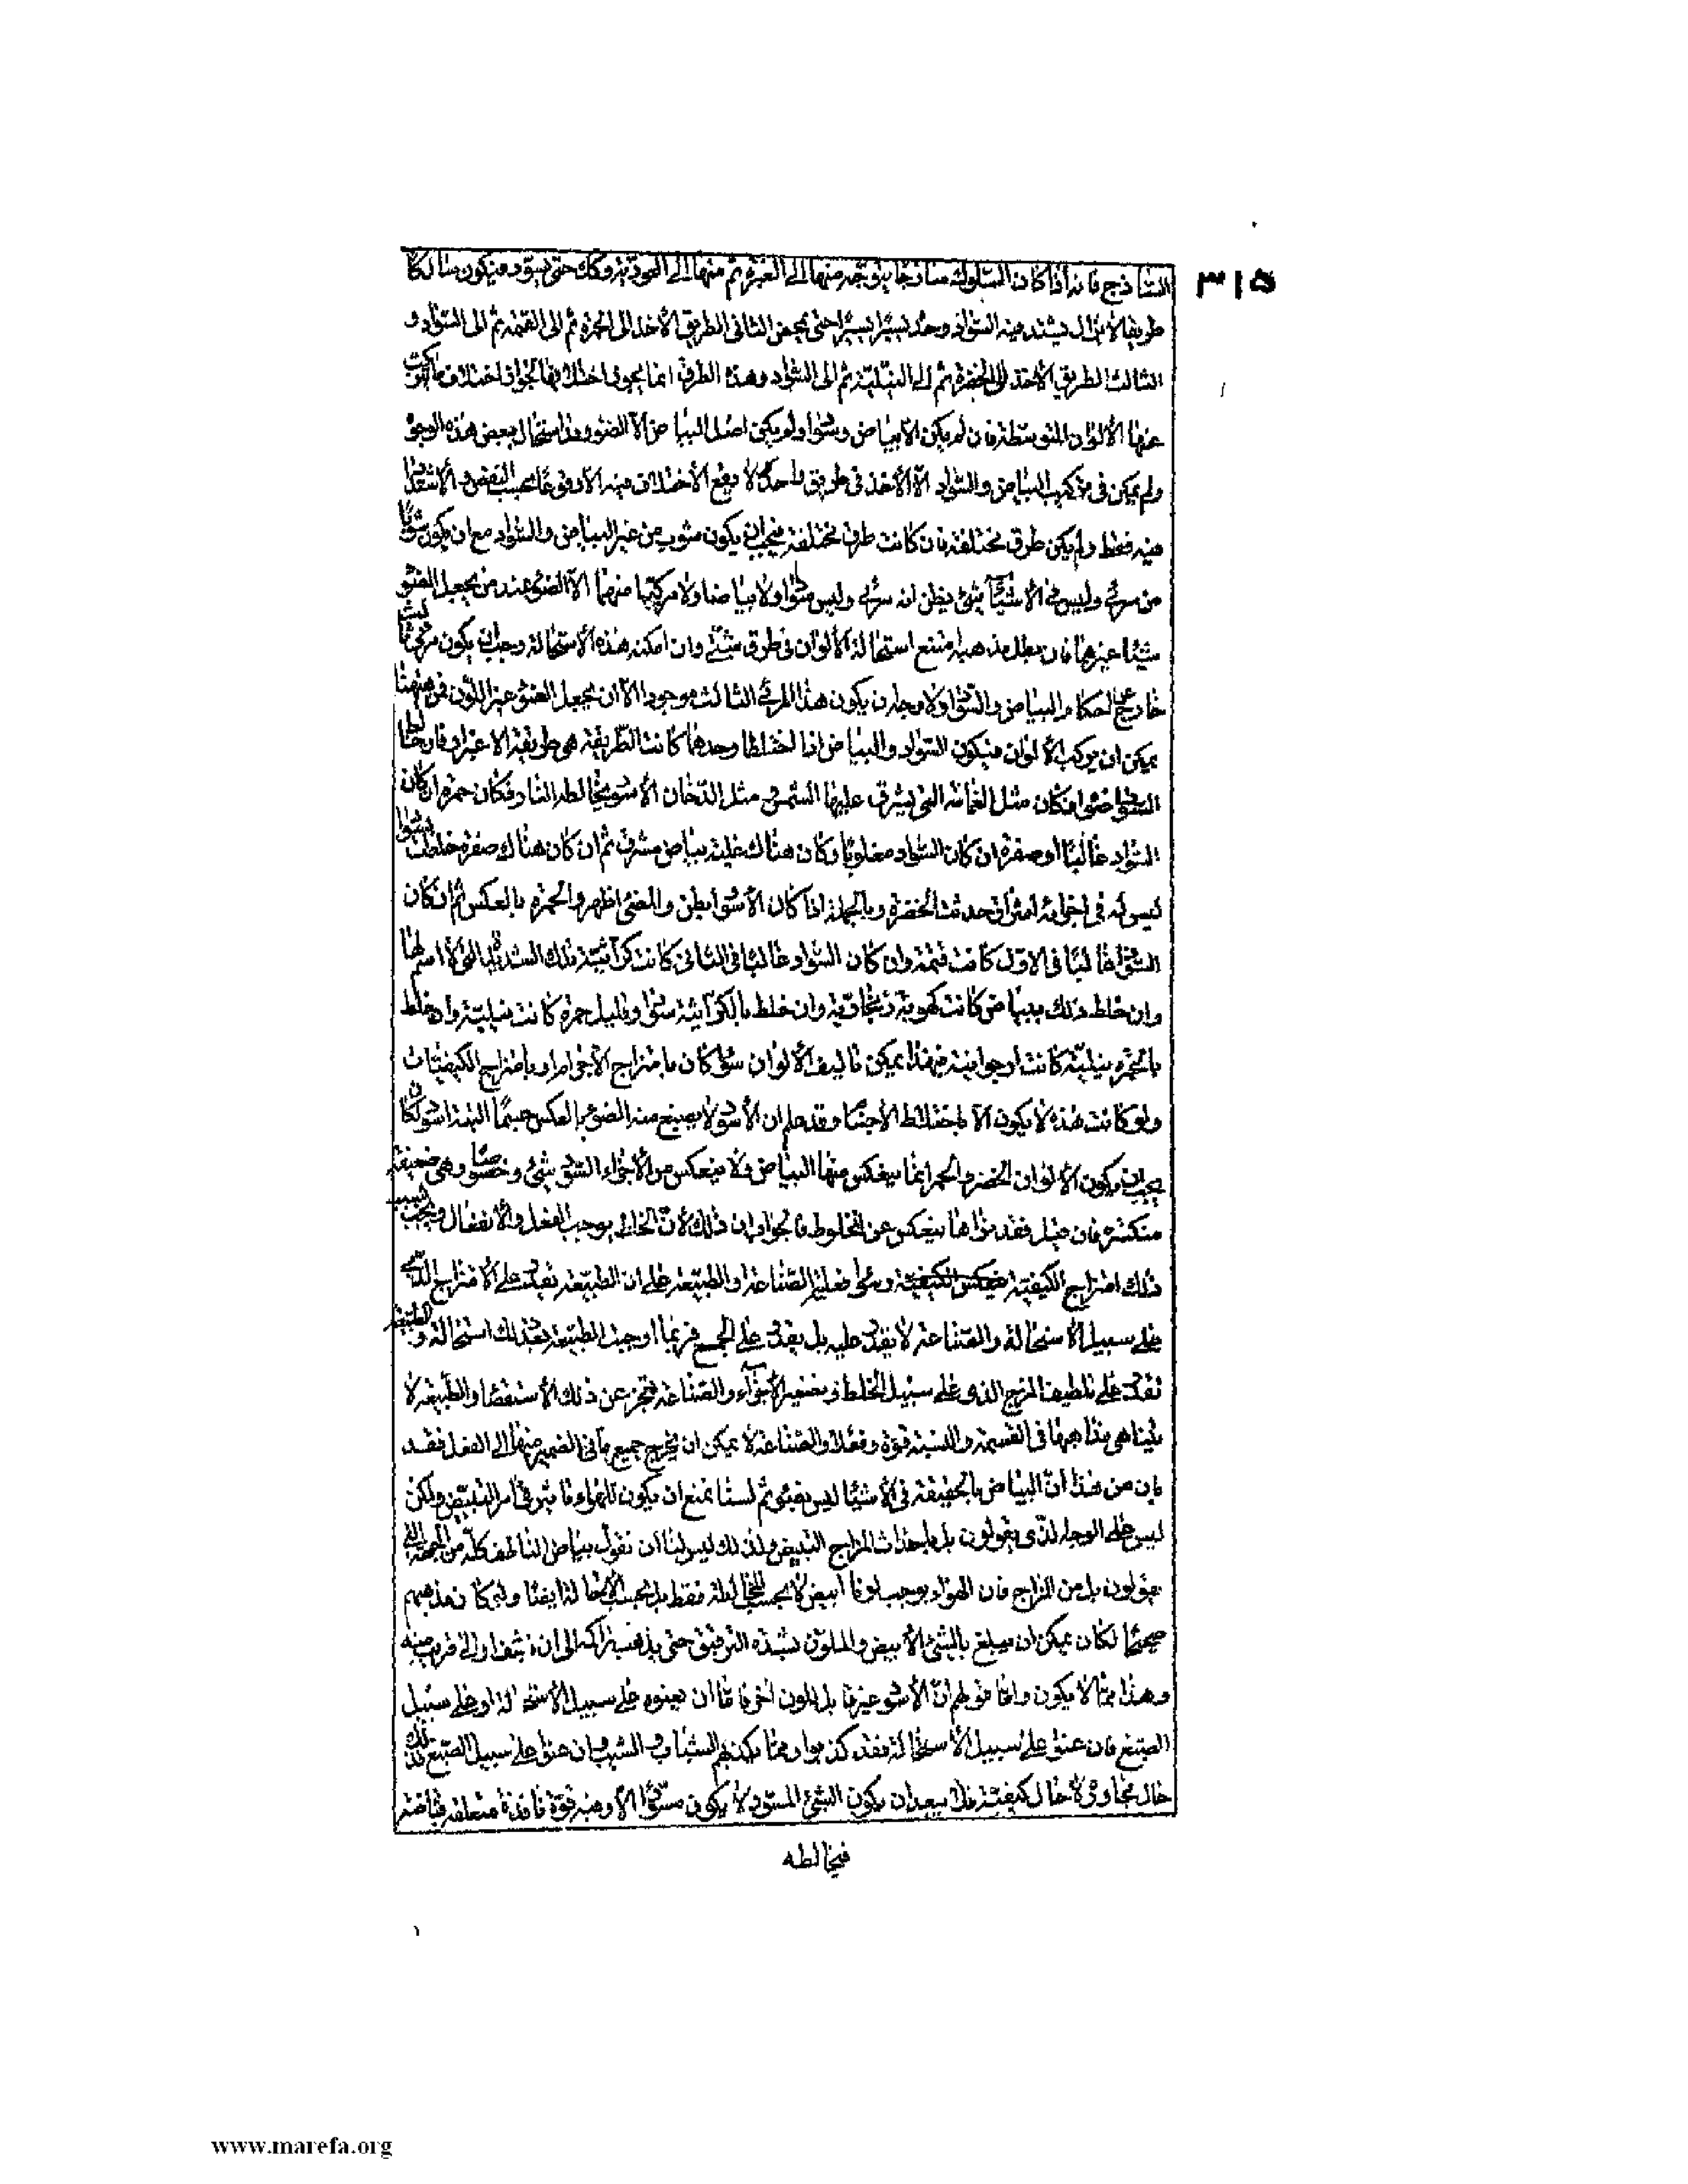 ٣١٥
الساذج فانه اذا كان السلوك ساذجا يتوجه منها الى الغبرة ثم منها الى العودية وكك حتى يسود فيكون سالكا
طريقا لا يزال يشتد فيه السواد وحده يسيرا يسيرا حتى يمحض الثانى الطريق الآخذ الى الحمرة ثم الى القتمة ثم الى السواد و
الثالث الطريق الآخذ الى الخضرة ثم الى النيلية ثم الى السواد وهذه الطرق انما يجوز اختلافها لجواز اختلاف ما يتركب
عنها الألوان المتوسطة فان لم يكن الا بياض وسواد ولم يكن اصل البياض الا الضوء وقد استحال ببعض هذه الوجوه
ولم يمكن فى تركيب البياض والسواد الا الأخذ فى طريق واحد لا يقع الأختلاف فيه الا وقوعا بحسب النقص والأشتداد
فيه فقط ولم يكن طرق مختلفة فان كانت طرق مختلفة فيجب ان يكون شوب من غير البياض والسواد مع ان يكون شوبا
من مرئى وليس فى الأشياء شئ يظن انه مرئى وليس سوادا ولا بياضا ولا مركبا منهما الا الضوء عند من يجعل الضوء
شيئا غيرهما فان بطل مذهبه امتنع استحالة الألوان فى طرق شتى وان امكن هذه الأستحالة وجب ان يكون مرئى ثالث
خارج عن احكام البياض والسواد ولا وجه ان يكون هذا المرئى الثالث موجودا الا ان يجعل الضوء غير اللون فمن هيهنا
يمكن ان يركب الألوان فيكون السواد والبياض اذا اختلطا وحدهما كانت الطريقة هى طريقة الاغبرار فان خالط
السواد ضوء فكان مثل الغمامة التى يشرق عليها الشمس ومثل الدخان الأسود يخالطه النار فكان حمرة ان كان
السواد غالبا او صفرة ان كان السواد مغلوبا وكان هناك غلبة بياض مشرق ثم ان كان هناك صفرة خلطت بسواد
ليس له فى اجزائه اشراق حدثت الخضرة وبالجملة اذا كان الأسود ابطن والمضئ اظهر والحمرة بالعكس ثم ان كان
السواد غالبا فى الاول كانت قتمة وان كان السواد غالبا فى الثانى كانت كراثية تلك الشديدة التى لا اسم لها
وان خلط ذلك ببياض كانت كهوبة زنجارية وان خلط بالكراثية سواد وقليل حمرة كانت نيلية وان خلط
بالحمرة نيلية كانت ارجوانية فبهذا يمكن تأليف الألوان سواء كان بامتزاج الأجرام او بامتزاج الكيفيات
ولو كانت هذه لا يكون الا باختلاط الأجسام وقد علم ان الأسود لا يصبغ منه الضوء بالعكس جسما البتة اسود لكان
يجب ان يكون الألوان الخضر والحمر انما ينعكس منها البياض ولا ينعكس من الأجزاء السود شئ وخصوصا وهى ضعيفة
منكسرة فان قيل فقد نراها ينعكس عن المخلوط فالجواب ان ذلك لأن الخلط يوجب الفعل والأنفعال ويجب بسبب
ذلك امتزاج الكيفية وسواء فعلته الصناعة او الطبيعة على ان الطبيعة تقدر على الامتزاج الذى
على سبيل الأستحالة والصناعة لا تقدر عليه بل يقدر على الجمع فربما اوجب الطبيعة بعد ذلك استحالة والطبيعة
تقدر على تلطيف المزج الذى على سبيل الخلط وتصغير الأجزاء والصناعة تعجز عن ذلك الأستقصاء والطبيعة لا
تتناهى مذاهبها فى القسمة والنسبة قوة وفعلا والصناعة لا يمكن ان يخرج جميع ما فى الضمير منها الى الفعل فقد
بان من هذا ان البياض بالحقيقة فى الأشياء ليس بضوء ثم لسنا نمنع ان يكون للهواء تأثير فى امر التبييض ولكن
ليس على الوجه الذى يقولون بل باحداث المزاج المبيض ولذلك ليس لنا ان نقول بياض الناطف كله من الجهة التى
يقولون بل من المزاج فان الهواء يوجب لونا ابيض لا بحسب المخالطة فقط بل بحسب الأحالة ايضا ولو كان مذهبهم
صحيحا لكان يمكن ان يبلغ بالشئ الأبيض والملون بشدة الترقيق حتى يذهب تراكمه الى ان يشف او الى قريب منه
وهذا مما لا يكون واما قولهم ان الأسود غير قابل للون آخر فاما ان يعنوه على سبيل الأستحالة او على سبيل
الصبغ فان عنوا على سبيل الأستحالة فقد كذبوا ومما يكذبهم الشباب والشيب وان عنوا على سبيل الصبغ فذلك
حال مجاورة لا حال كيفية فلا يبعد ان يكون الشئ المسود لا يكون مسودا الا وفيه قوة نافذة متعلقة قباضة
فيخالطه
www.marefa.org